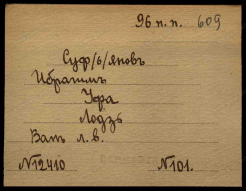 96 п.п. 609
Суф/ь/яновъ
Ибрагимъ
Уфа
Лодзь
Ват л.в.
№12410 №101.